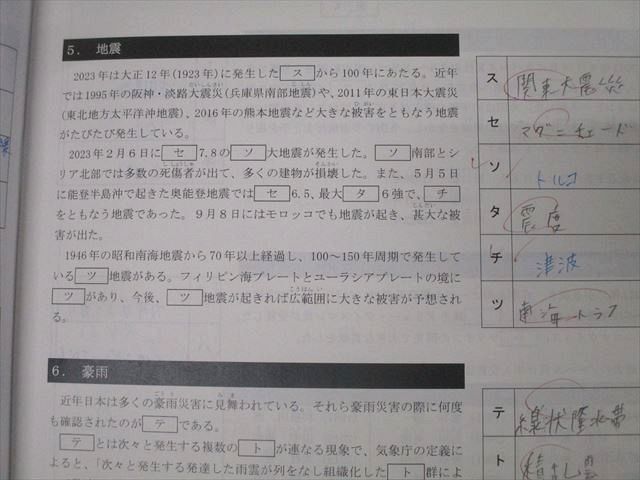 5. 地震
2023年は大正12年(1923年)に発生した ス から100年にあたる。近年
では1995年の阪神・淡路大震災(兵庫県南部地震)や、2011年の東日本大震災
(東北地方太平洋沖地震)、2016年の熊本地震など大きな被害をともなう地震
がたびたび発生している。
2023年2月6日に セ 7.8の ソ 大地震が発生した。 ソ 南部とシ
リア北部では多数の死傷者が出て、多くの建物が損壊した。また、5月5日
に能登半島沖で起きた奥能登地震では セ 6.5、最大 タ 6強で、 チ
をともなう地震であった。9月8日にはモロッコでも地震が起き、甚大な被
害が出た。
1946年の昭和南海地震から70年以上経過し、100〜150年周期で発生して
いる ツ 地震がある。フィリピン海プレートとユーラシアプレートの境に
ツ があり、今後、 ツ 地震が起きれば広範囲に大きな被害が予想され
る。
ス 関東大震災
セ マグニチュード
ソ トルコ
タ 震度
チ 津波
ツ 南海トラフ
6. 豪雨
近年日本は多くの豪雨災害に見舞われている。それら豪雨災害の際に何度
も確認されたのが テ である。
テ とは次々と発生する複数の ト が連なる現象で、気象庁の定義に
よると、「次々と発生する発達した雨雲が列をなし組織化した ト 群によ
テ 線状降水帯
ト 積乱雲